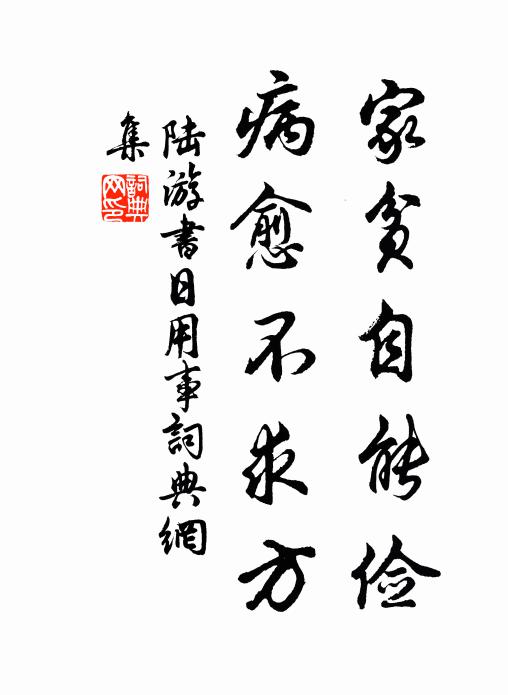 家贫自能俭
病愈不求方
陆游书日用事詞典網
集
詞典网印